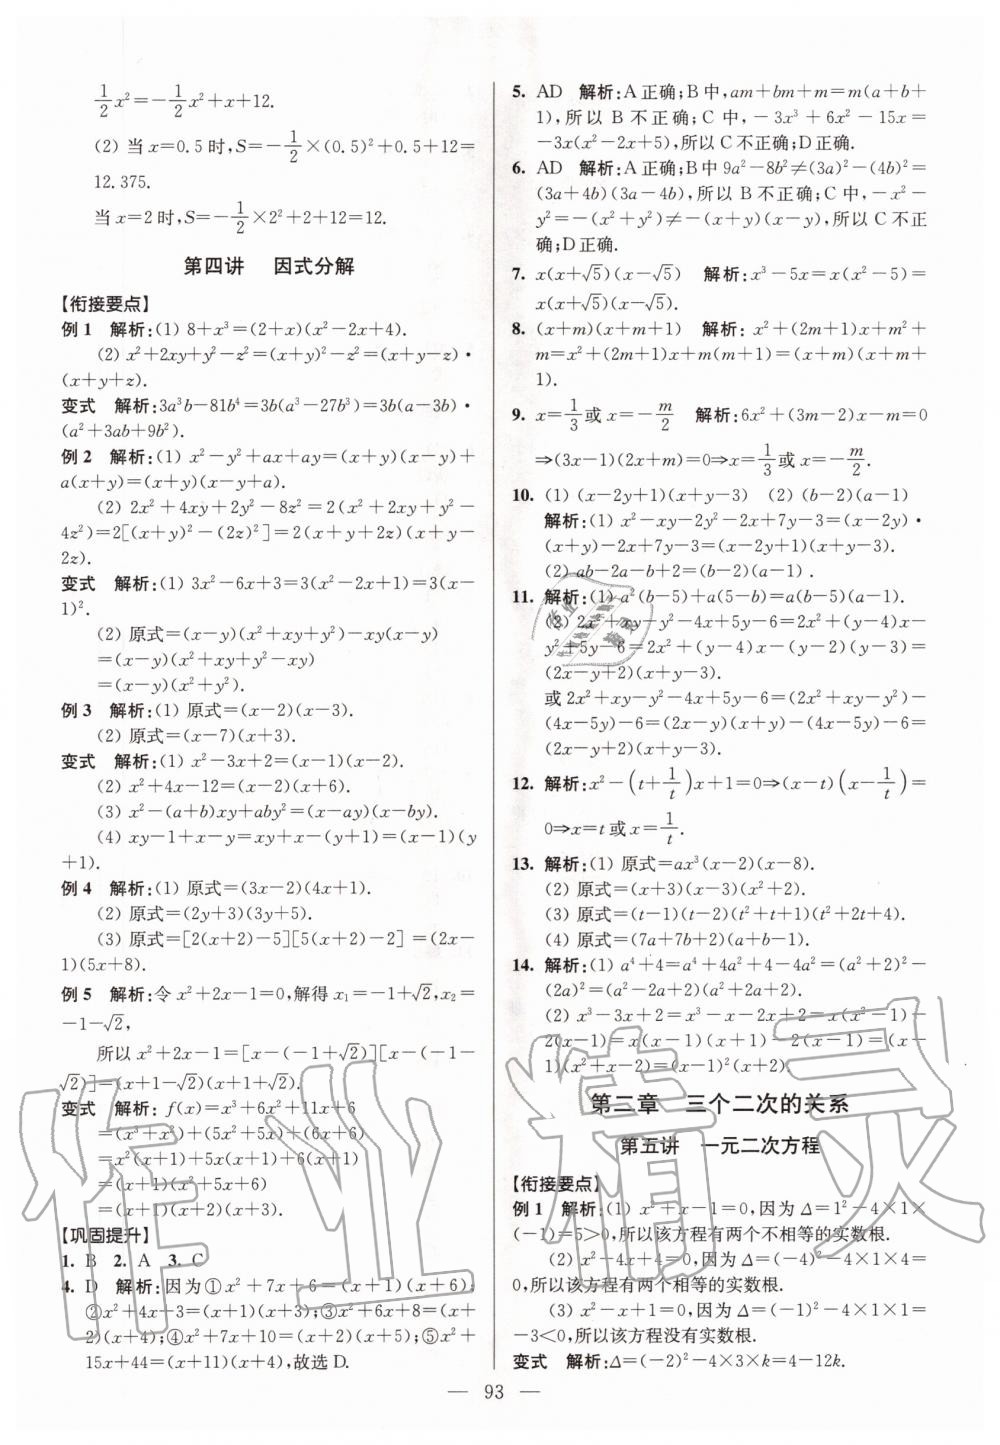 1/2x²=-1/2x²+x+12.
(2) 当 x=0.5 时,S=-1/2×(0.5)²+0.5+12=
12.375.
当 x=2 时,S=-1/2×2²+2+12=12.
第四讲 因式分解
【衔接要点】
例 1 解析:(1) 8+x³=(2+x)(x²-2x+4).
(2) x²+2xy+y²-z²=(x+y)²-z²=(x+y-z)·
(x+y+z).
变式 解析:3a³b-81b⁴=3b(a³-27b³)=3b(a-3b)·
(a²+3ab+9b²).
例 2 解析:(1) x²-y²+ax+ay=(x+y)(x-y)+
a(x+y)=(x+y)(x-y+a).
(2) 2x²+4xy+2y²-8z²=2(x²+2xy+y²-
4z²)=2[(x+y)²-(2z)²]=2(x+y+2z)(x+y-
2z).
变式 解析:(1) 3x²-6x+3=3(x²-2x+1)=3(x-
1)².
(2) 原式=(x-y)(x²+xy+y²)-xy(x-y)
=(x-y)(x²+xy+y²-xy)
=(x-y)(x²+y²).
例 3 解析:(1) 原式=(x-2)(x-3).
(2) 原式=(x-7)(x+3).
变式 解析:(1) x²-3x+2=(x-1)(x-2).
(2) x²+4x-12=(x-2)(x+6).
(3) x²-(a+b)xy+aby²=(x-ay)(x-by).
(4) xy-1+x-y=xy+x-(y+1)=(x-1)(y
+1).
例 4 解析:(1) 原式=(3x-2)(4x+1).
(2) 原式=(2y+3)(3y+5).
(3) 原式=[2(x+2)-5][5(x+2)-2]=(2x-
1)(5x+8).
例 5 解析:令 x²+2x-1=0,解得 x₁=-1+√2,x₂=
-1-√2,
所以 x²+2x-1=[x-(-1+√2)][x-(-1-
√2)]=(x+1-√2)(x+1+√2).
变式 解析:f(x)=x³+6x²+11x+6
=(x³+x²)+(5x²+5x)+(6x+6)
=x²(x+1)+5x(x+1)+6(x+1)
=(x+1)(x²+5x+6)
=(x+1)(x+2)(x+3).
【巩固提升】
1. B 2. A 3. C
4. D 解析:因为①x²+7x+6=(x+1)(x+6);
②x²+4x+3=(x+1)(x+3);③x²+6x+8=(x+
2)(x+4);④x²+7x+10=(x+2)(x+5);⑤x²+
15x+44=(x+4)(x+11),故选 D.
5. AD 解析:A 正确;B 中,am+bm+m=m(a+b+
1),所以 B 不正确;C 中,-3x³+6x²-15x=
-3x(x²-2x+5),所以 C 不正确;D 正确.
6. AD 解析:A 正确;B 中 9a²-8b²≠(3a)²-(4b)²=
(3a+4b)(3a-4b),所以 B 不正确;C 中,-x²-
y²=-(x²+y²)≠-(x+y)(x-y),所以 C 不正
确;D 正确.
7. x(x+√5)(x-√5) 解析:x³-5x=x(x²-5)=
x(x+√5)(x-√5).
8. (x+m)(x+m+1) 解析:x²+(2m+1)x+m²+
m=x²+(2m+1)x+m(m+1)=(x+m)(x+m+
1).
9. x=1/3或 x=-m/2 解析:6x²+(3m-2)x-m=0
⇒(3x-1)(2x+m)=0⇒x=1/3或 x=-m/2.
10. (1) (x-2y+1)(x+y-3) (2) (b-2)(a-1)
解析:(1) x²-xy-2y²-2x+7y-3=(x-2y)·
(x+y)-2x+7y-3=(x-2y+1)(x+y-3).
(2) ab-2a-b+2=(b-2)(a-1).
11. 解析:(1) a²(b-5)+a(5-b)=a(b-5)(a-1).
(2) 2x²+xy-y²-4x+5y-6=2x²+(y-4)x-
y²+5y-6=2x²+(y-4)x-(y-2)(y-3)=
(2x-y+2)(x+y-3).
或 2x²+xy-y²-4x+5y-6=(2x²+xy-y²)-
(4x-5y)-6=(2x-y)(x+y)-(4x-5y)-6=
(2x-y+2)(x+y-3).
12. 解析:x²-(t+1/t)x+1=0⇒(x-t)(x-1/t)=
0⇒x=t 或 x=1/t.
13. 解析:(1) 原式=ax³(x-2)(x-8).
(2) 原式=(x+3)(x-3)(x²+2).
(3) 原式=(t-1)(t-2)(t²+t+1)(t²+2t+4).
(4) 原式=(7a+7b+2)(a+b-1).
14. 解析:(1) a⁴+4=a⁴+4a²+4-4a²=(a²+2)²-
(2a)²=(a²-2a+2)(a²+2a+2).
(2) x³-3x+2=x³-x-2x+2=x(x²-1)-
2(x-1)=x(x+1)(x-1)-2(x-1)=(x-
1)(x²+x-2)=(x-1)²(x+2).
第二章 三个二次的关系
第五讲 一元二次方程
【衔接要点】
例 1 解析:(1) x²+x-1=0,因为 Δ=1²-4×1×
(-1)=5>0,所以该方程有两个不相等的实数根.
(2) x²-4x+4=0,因为 Δ=(-4)²-4×1×4=
0,所以该方程有两个相等的实数根.
(3) x²-x+1=0,因为 Δ=(-1)²-4×1×1=
-3<0,所以该方程没有实数根.
变式 解析:Δ=(-2)²-4×3×k=4-12k.
— 93 —
作业精灵